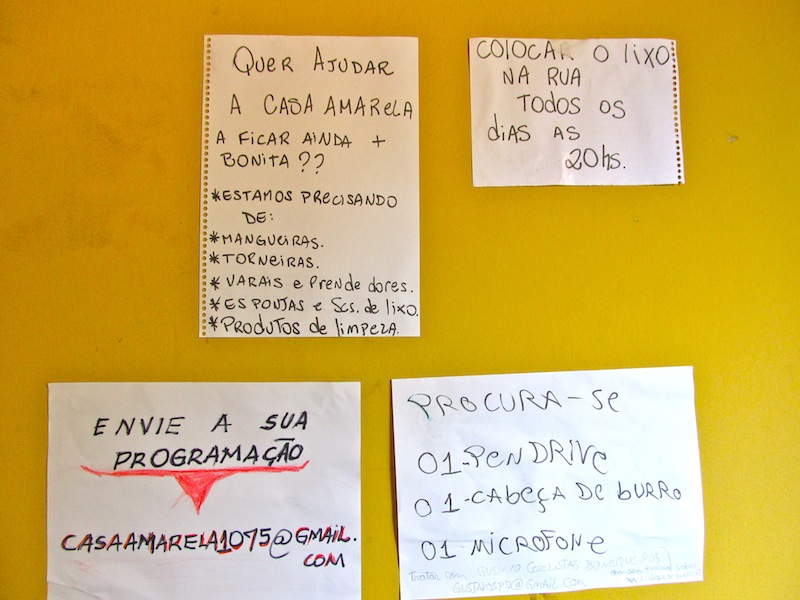 QUER AJUDAR
A CASA AMARELA
A FICAR AINDA +
BONITA??
*ESTAMOS PRECISANDO
DE:
*MANGUEIRAS.
*TORNEIRAS.
*VARAIS e PRENDEDORES.
*ESPONJAS e SCS. de LIXO.
*PRODUTOS de LIMPEZA.
COLOCAR O LIXO
NA RUA
TODOS OS
DIAS AS
20hs.
ENVIE A SUA
PROGRAMAÇÃO
CASAAMARELA1075@GMAIL.
COM
PROCURA-SE
01-PENDRIVE
01-CABEÇA DE BURRO
01-MICROFONE
Tratar com GUSTAVO
@GMAIL.com